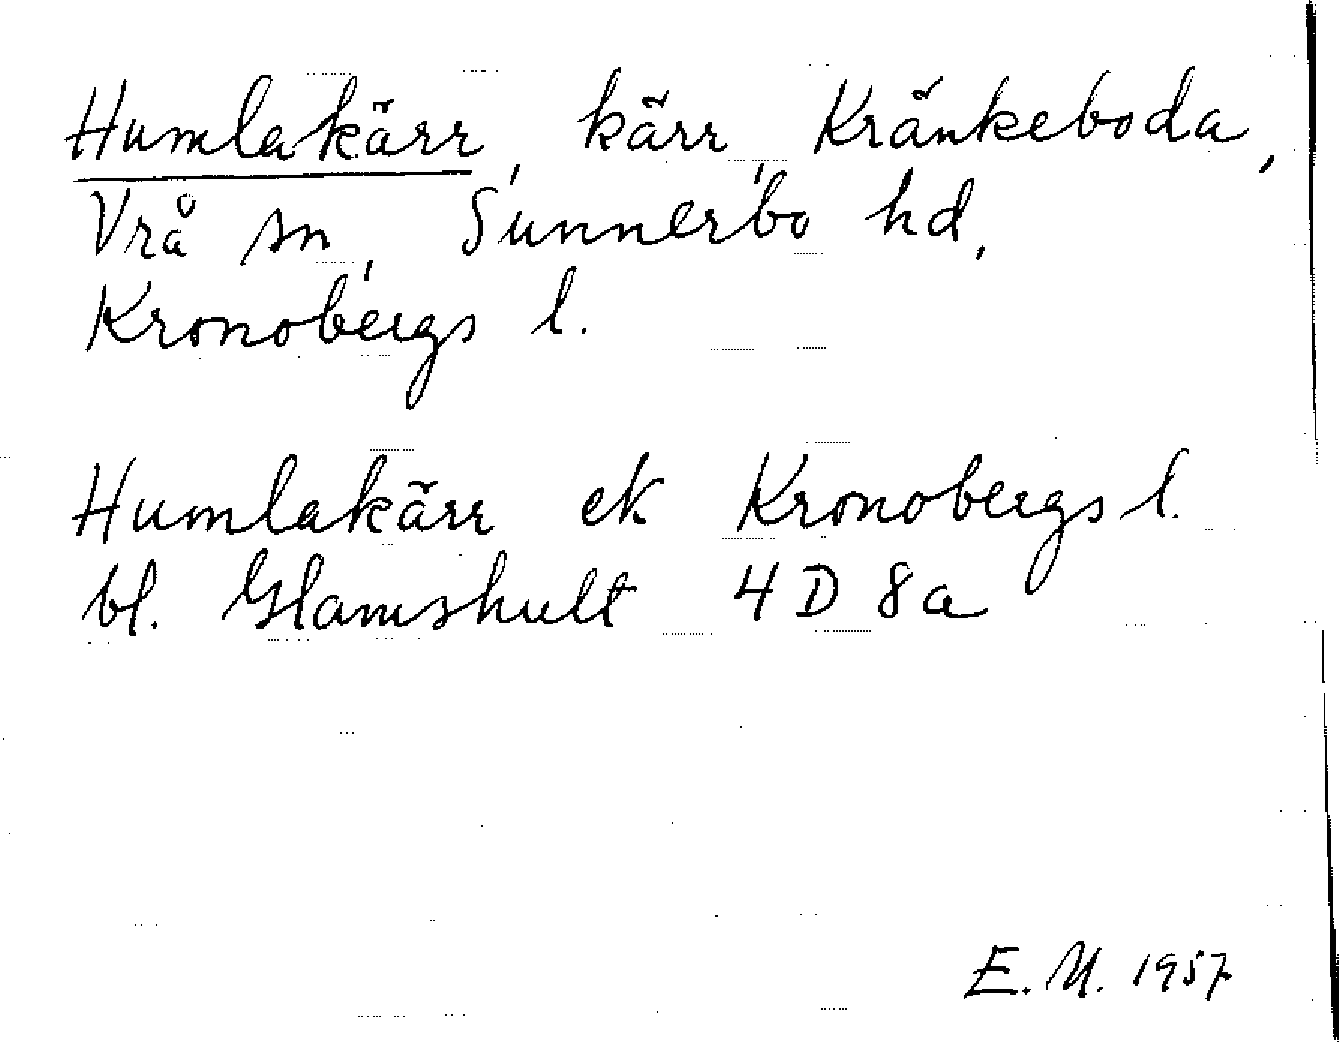 Humlakärr, kärr, Kränkeboda,
Vrå sn, Sunnerbo hd,
Kronobergs l.
Humlakärr ek Kronobergs l.
bl. Glamshult 4 D 8 a
E. M. 1957